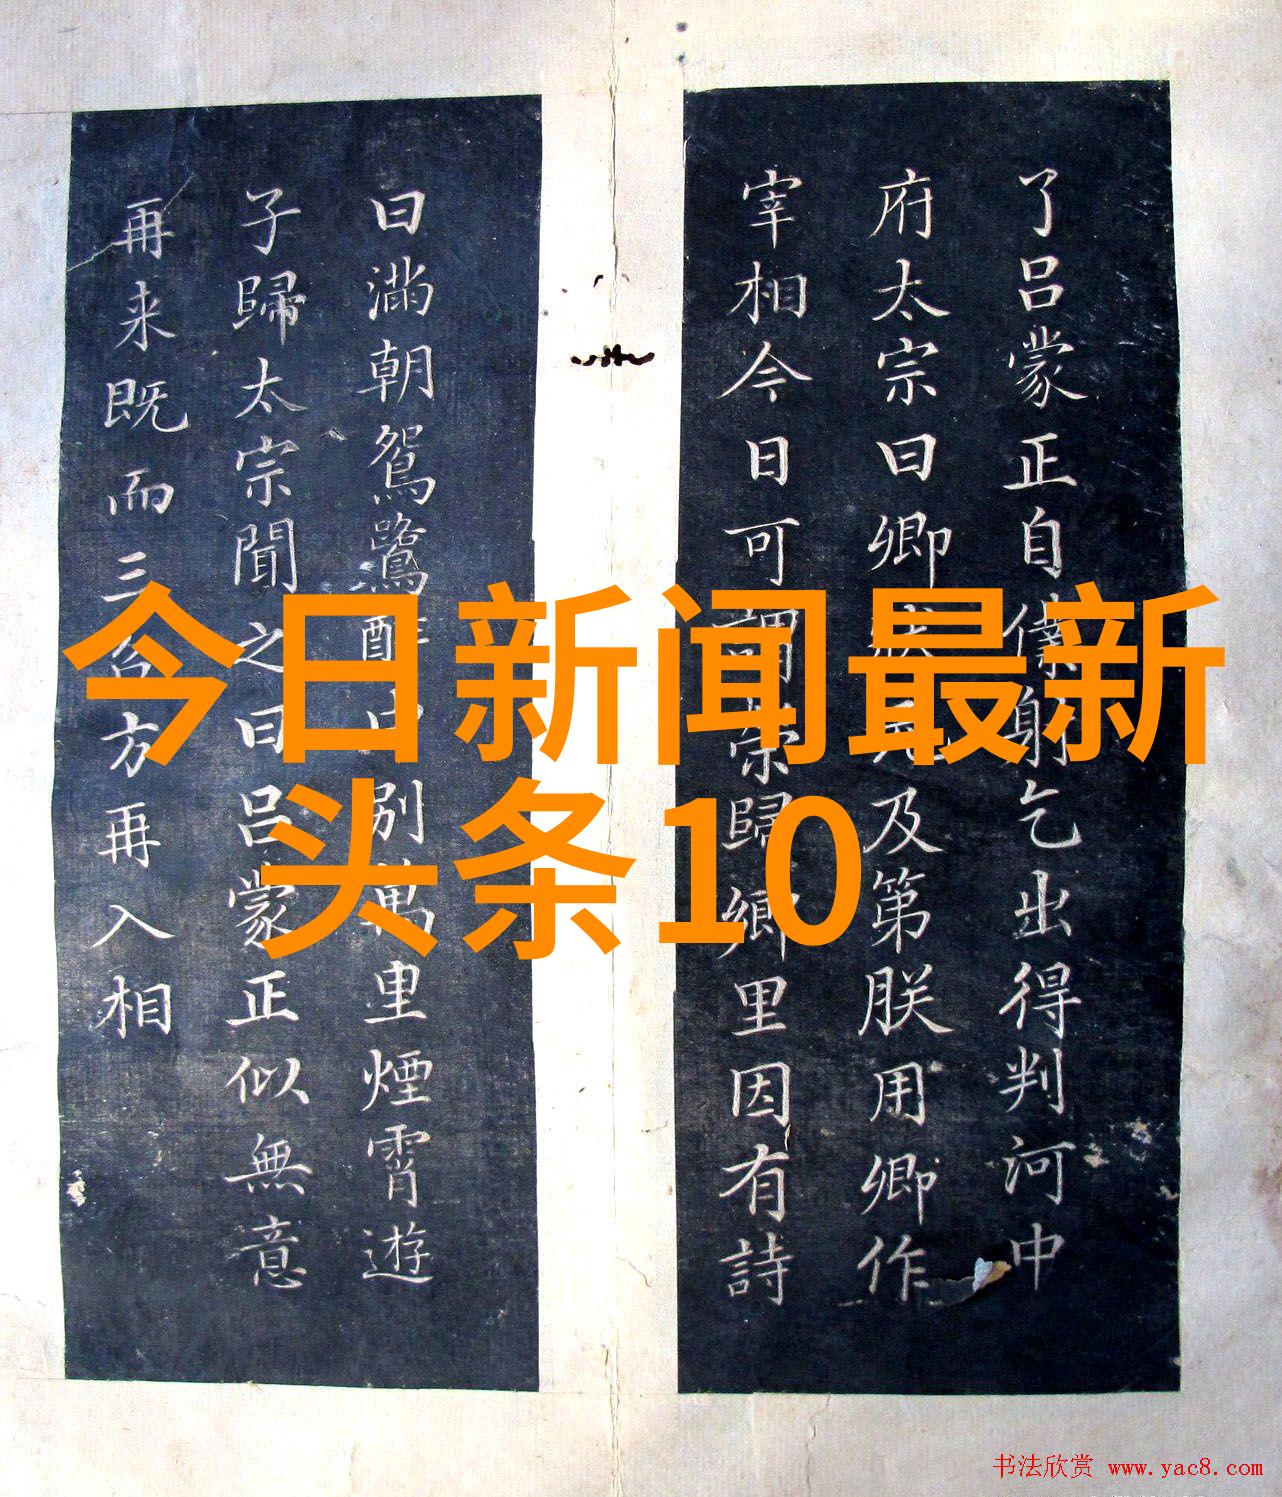 了吕蒙正自僕射乞出得判河中
府太宗曰卿及第朕用卿作
宰相今日可謂榮歸鄉里因有詩
曰滿朝鴛鷺醉中别萬里煙霄遊
子歸太宗聞之曰吕蒙正似無意
再来既而三台方再入相
今日新闻最新
头条10
书法欣赏 www.yac8.com